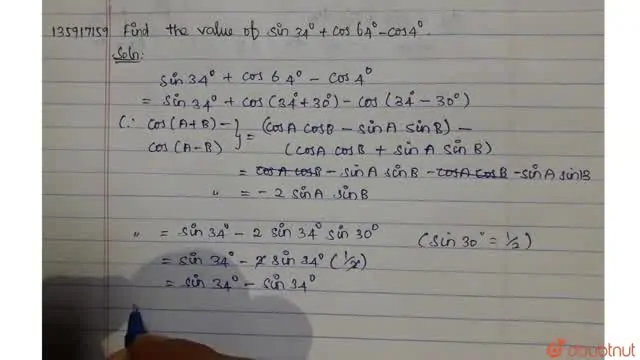 135917159 Find the value of sin 34° + cos 64° - cos 4°.
Soln:
sin 34° + cos 64° - cos 4°
= sin 34° + cos (34° + 30°) - cos (34° - 30°)
(∵ cos (A+B) - cos (A-B) } = (cos A cos B - sin A sin B) -
(cos A cos B + sin A sin B)
= cos A cos B - sin A sin B - cos A cos B - sin A sin B
" = - 2 sin A sin B
" = sin 34° - 2 sin 34° sin 30° (sin 30° = 1/2)
= sin 34° - 2 sin 34° (1/2)
= sin 34° - sin 34°
doubtnut